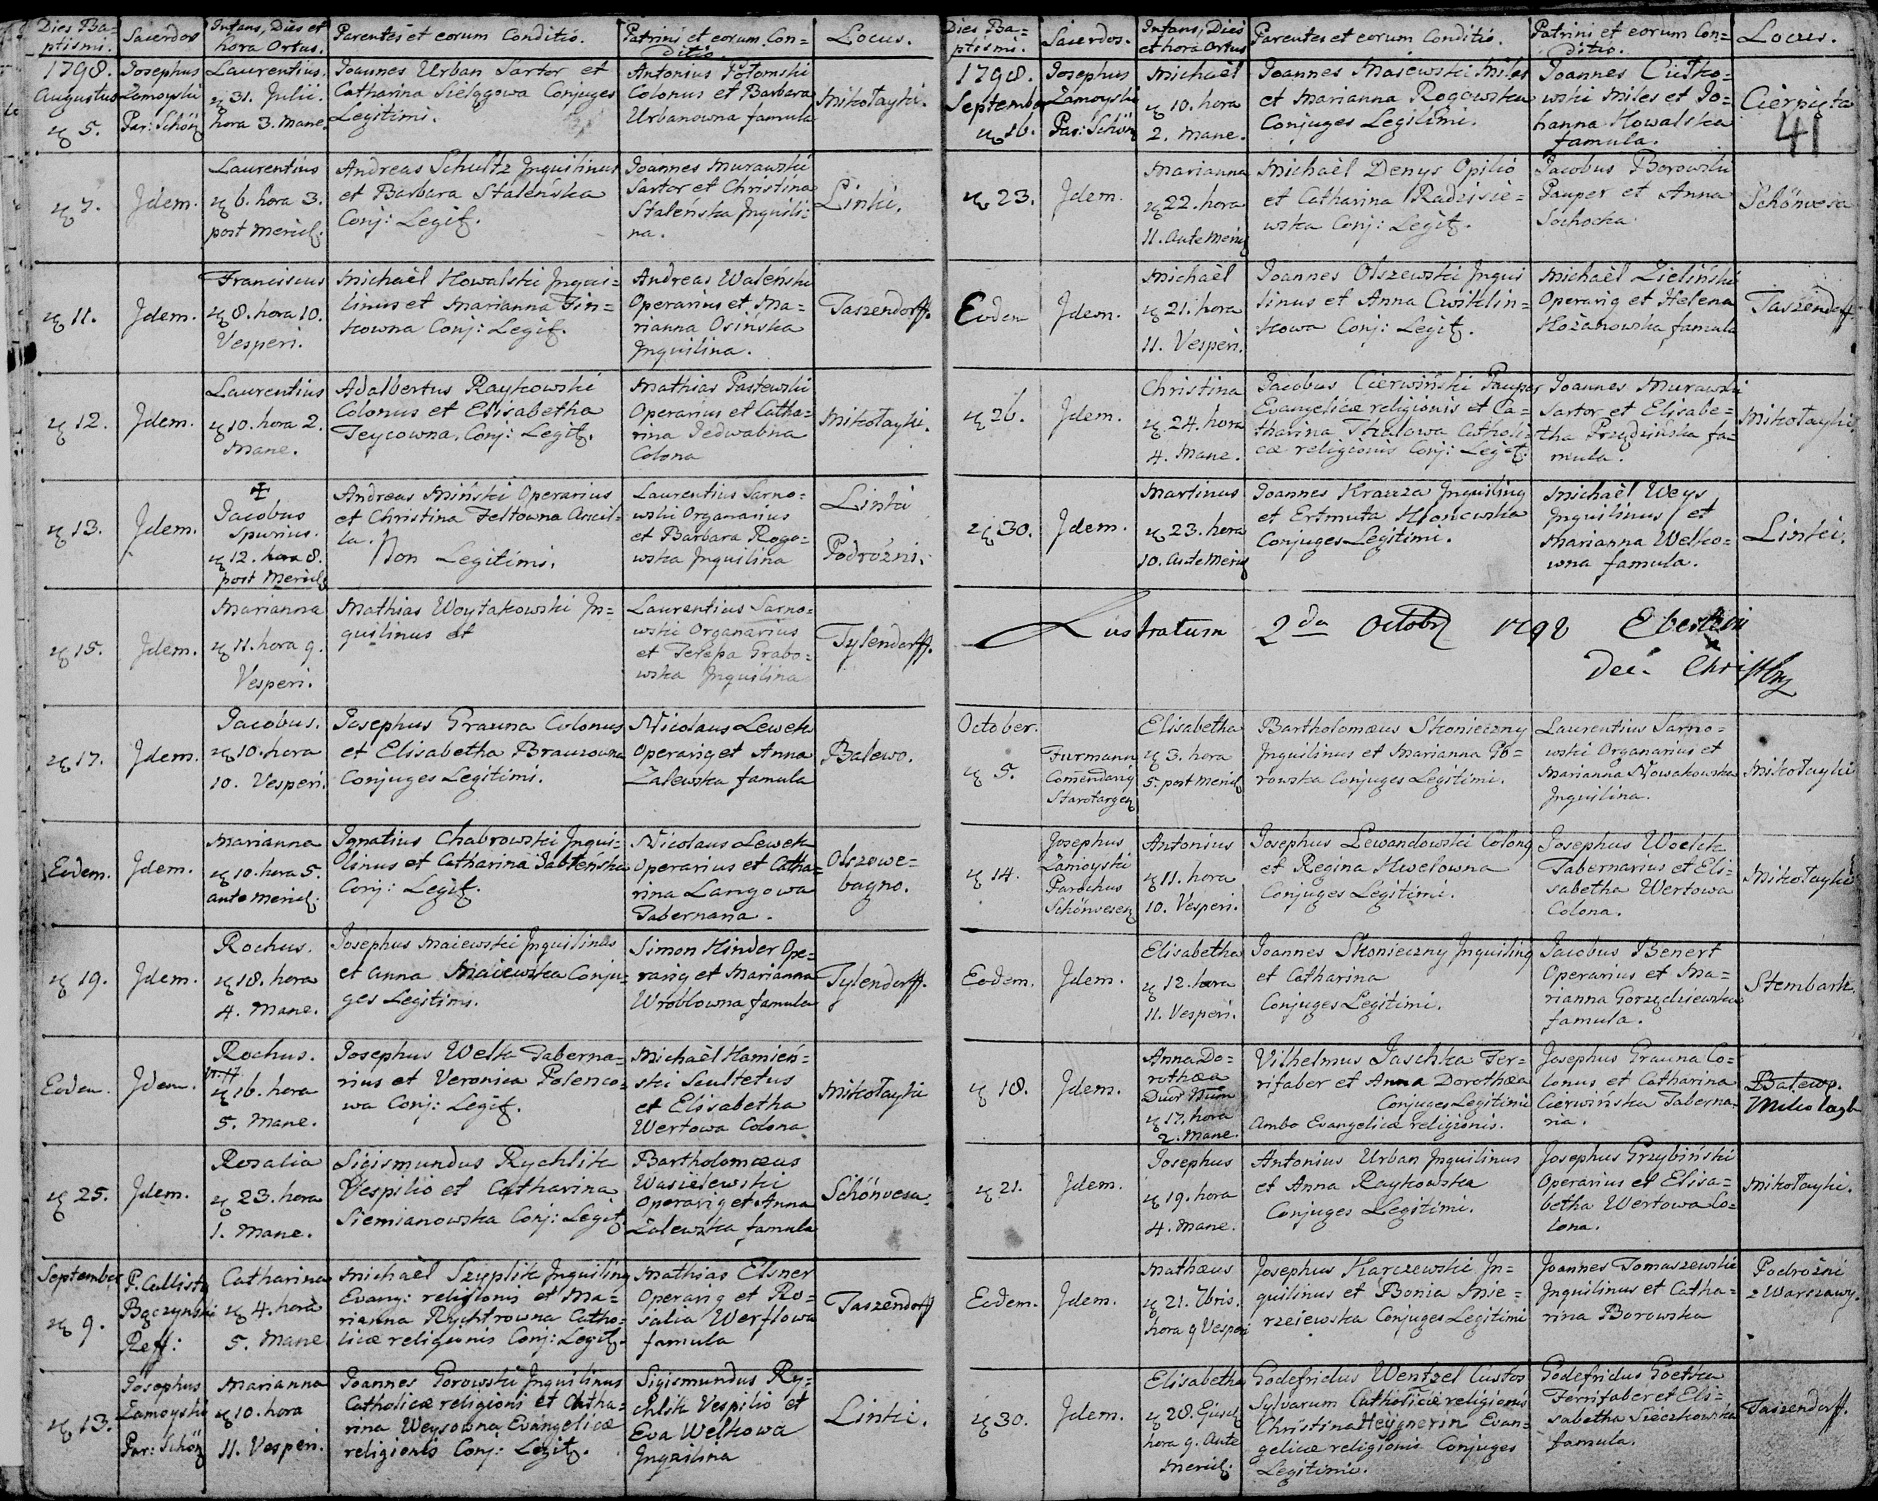 Dies Ba=
ptismi.
Sacerdos
Infans, Dies et
hora Ortus.
Parentes et eorum Conditio.
Patrini et eorum Con=
ditio.
Locus.
1798.
Augustus
5.
Josephus
Zamoyski
Par: Schön
Laurentius.
31. Julii.
hora 3. Mane.
Joannes Urban Sartor et
Catharina Sielągowa Conjuges
Legitimi.
Antonius Potomski
Colonus et Barbara
Urbanowna famula
Mikołayki.
7.
Jdem.
Laurentius
6. hora 3.
post Merid.
Andreas Schultz Jnquilinus
et Barbara Staleńska
Conj: Legit.
Joannes Murawski
Sartor et Christina
Staleńska Jnquili=
na.
Linki.
11.
Jdem.
Franciscus
8. hora 10.
Vesperi.
Michaël Kowalski Jnqui=
linus et Marianna Fin=
kowna Conj: Legit.
Andreas Waleński
Operarius et Ma=
rianna Osińska
Jnquilina.
Taszendorff.
12.
Jdem.
Laurentius
10. hora 2.
Mane.
Adalbertus Raykowski
Colonus et Elisabetha
Teycowna. Conj: Legit.
Mathias Pastewski
Operarius et Catha=
rina Jedwabna
Colona
Mikołayki.
13.
Jdem.
Jacobus
Spurius.
12. hora 8.
post Merid
Andreas Miński Operarius
et Christina Feltowna Ancil=
la.
Non Legitimi.
Laurentius Sarno=
wski Organarius
et Barbara Rogo=
wska Jnquilina
Linki
Podrózni.
15.
Jdem.
Marianna
11. hora 9.
Vesperi.
Mathias Woytakowski Jn=
quilinus et
Laurentius Sarno=
wski Organarius
et Teressa Grabo=
wska Jnquilina
Tylendorff.
17.
Jdem.
Jacobus.
10. hora
10. Vesperi.
Josephus Grauna Colonus
et Elisabetha Brauzowna
Conjuges Legitimi.
Nicolaus Lewek
Operarig et Anna
Zalewska famula
Balewo.
Eodem.
Jdem.
Marianna
10. hora 5.
ante Merid.
Ignatius Chabrowski Jnqui=
linus et Catharina Jabłonska
Conj: Legit.
Nicolaus Lewek
Operarius et Catha=
rina Langowa
Tabernaria.
Olszowe=
bagno.
19.
Jdem.
Rochus.
18. hora
4. Mane.
Josephus Maiewski Jnquilinus
et Anna Maiewska Conju=
ges Legitimi.
Simon Kinder Ope=
rarig et Marianna
Wróblowna famula
Tylendorff.
Eodem.
Jdem.
Rochus.
16. hora
5. Mane.
Josephus Welk Taberna=
rius et Veronica Polenco=
wa Conj: Legit.
Michaël Kamień=
ski Scultetus
et Elisabetha
Wertowa Colona
Mikołayki
25.
Jdem.
Rosalia
23. hora
1. Mane.
Sigismundus Rychlik
Vespilio et Catharina
Siemianowska Conj: Legit
Bartholomæus
Wasielewski
Operarig et Anna
Zalewska famula
Schönvesa.
September
9.
P. Callistg
Bączynski
Reff:
Catharina
4. hora
5. Mane
Michaël Szyplik Jnquiling
Evang: religionis et Ma=
rianna Rychtrowna Catho=
licæ religionis Conj: Legit.
Mathias Elsner
Operarig et Ro=
salia Werflowa
famula
Taszendorff
13.
Josephus
Zamoyski
Par: Schön
Marianna
10. hora
11. Vesperi.
Joannes Gorowski Jnquilinus
Catholicæ religioni et Catha=
rina Weysowna Evangelicæ
religionis Conj: Legit.
Sigismundus Ry=
chlik Vespilio et
Eva Welkowa
Jnquilina
Linki.
Dies Ba=
ptismi.
Sacerdos.
Infans, Dies
et hora Ortus
Parentes et eorum Conditio.
Patrini et eorum Con=
ditio.
Locus.
1798.
September
16.
Josephus
Zamoyski
Par: Schön
Michaël
10. hora
2. Mane.
Joannes Maiewski Miles
et Marianna Rogowska
Conjuges Legitimi.
Joannes Ciutko=
wski Miles et Jo=
hanna Kowalska
famula.
Cierpięta
41
23.
Jdem.
Marianna
22. hora
11. Ante Merid
Michaël Denys Opilio
et Catharina Radzisze=
wska Conj: Legit.
Jacobus Borowski
Pauper et Anna
Sochocka
Schönvesa
Eodem
Jdem.
Michaël
21. hora
11. Vesperi.
Joannes Olszewski Jnqui
linus et Anna Cwiklin=
skowa Conj: Legit.
Michaël Zieliński
Operarig et Helena
Kożanowska famula
Taszendorff
26.
Jdem.
Christina
24. hora
4. Mane.
Jacobus Cierwiński Pauper
Evangelicæ religionis et Ca=
tharina Thalowa Catholi=
cæ religionis Conj: Legit.
Joannes Murawski
Sartor et Elisabe=
tha Prądzińska fa=
mula.
Mikołayki.
30.
Jdem.
Martinus
23. hora
10. Ante Merid
Joannes Krauza Jnquiling
et Ertmuta Klonowska
Conjuges Legitimi.
Michaël Weys
Jnquilinus et
Marianna Welko=
wna famula.
Linki.
Lustratum 2da Octobr 1798 Eberstein
Dec. Christbg
October.
5.
Furmann
Comendarig
Starotargen
Elisabetha
3. hora
5. post Merid
Bartholomæus Skonieczny
Jnquilinus et Marianna Gó=
rowska Conjuges Legitimi.
Laurentius Sarno=
wski Organarius et
Marianna Nowakowska
Jnquilina.
Mikołayki
14.
Josephus
Zamoyski
Parochus
Schönvesen
Antonius
11. hora
10. Vesperi.
Josephus Lewandowski Colong
et Regina Kwelowna
Conjuges Legitimi.
Josephus Woelck
Tabernarius et Eli=
sabetha Wertowa
Colona.
Mikołayki
Eodem.
Jdem.
Elisabetha
12. hora
11. Vesperi.
Joannes Skonieczny Jnquiling
et Catharina
Conjuges Legitimi.
Jacobus Benert
Operarius et Ma=
rianna Gorzędziewska
famula.
Stembark.
18.
Jdem.
Anna Do=
rothæa
17. hora
2. Mane.
Vilhelmus Jaschka Fer=
rifaber et Anna Dorothæa
Conjuges Legitimi
Ambo Evangelicæ religionis.
Josephus Grauna Co=
lonus et Catharina
Cierwińska Taberna=
ria.
Balewo.
Mikołayk
21.
Jdem.
Josephus
19. hora
4. Mane.
Antonius Urban Jnquilinus
et Anna Raykowska
Conjuges Legitimi.
Josephus Grzybiński
Operarius et Elisa=
betha Wertowa Co=
lona.
Mikołayki.
Eodem.
Jdem.
Mathæus
21. 7bris.
hora 9 Vesperi
Josephus Karczewski Jn=
quilinus et Bonia Mie=
rzeiewska Conjuges Legitimi
Joannes Tomaszewski
Jnquilinus et Catha=
rina Borowska
Podrożni
z Warszawy.
30.
Jdem.
Elisabetha
28. Ejusd
hora 9. Ante
Merid.
Godefridus Wentzel Custos
Sylvarum Catholicæ religionis
Christina Heygnerin Evan=
gelicæ religionis Conjuges
Legitimi.
Godefridus Goetka
Ferrifaber et Eli=
sabetha Sieczkowska
famula.
Taszendorff.